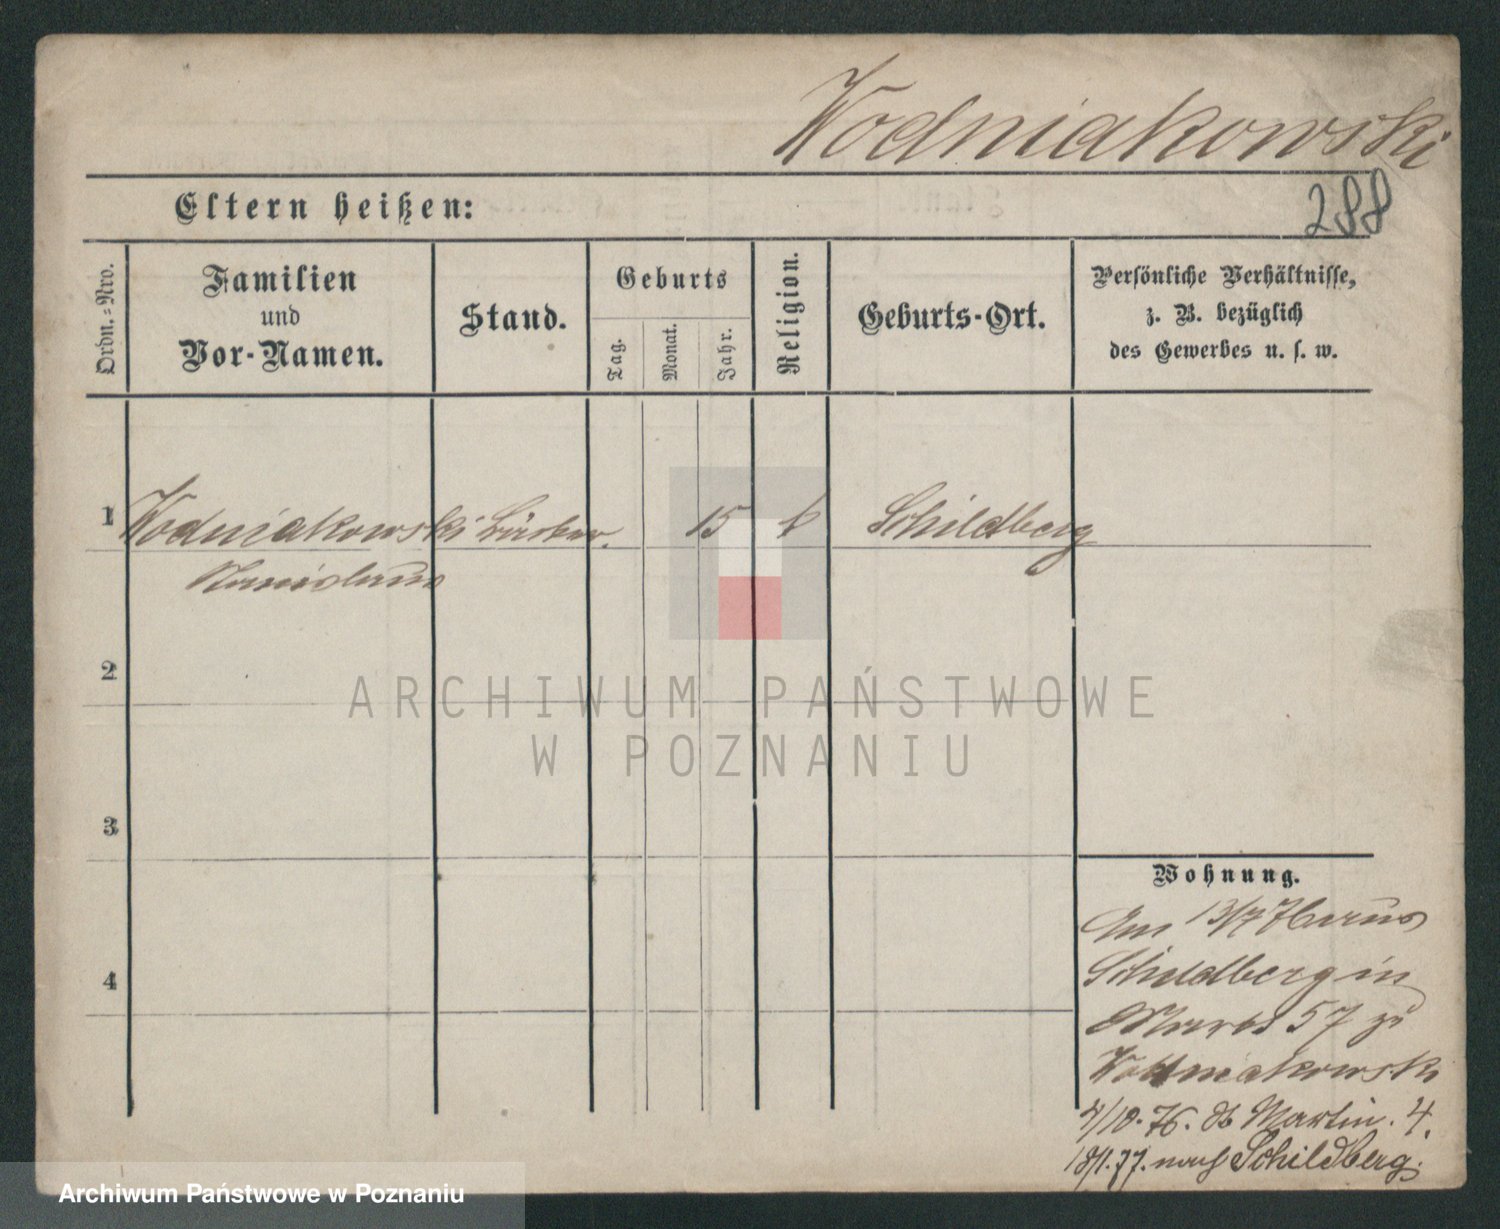 Wodniakowski
Eltern heißen:
288
Ordn.-Nro.
Familien
und
Vor-Namen.
Stand.
Geburts
Tag.
Monat.
Jahr.
Religion.
Geburts-Ort.
Persönliche Verhältnisse,
z. B. bezüglich
des Gewerbes u. s. w.
1 Wodniakowski 15 Schildberg
Stanislaus
2
3
4
Wohnung.
Am 13/7 76 aus
Schildberg in
57 zu
Wodniakowski
4/10.76. St Martin. 4.
18/1.77. nach Schildberg.
ARCHIWUM PAŃSTWOWE
W POZNANIU
Archiwum Państwowe w Poznaniu